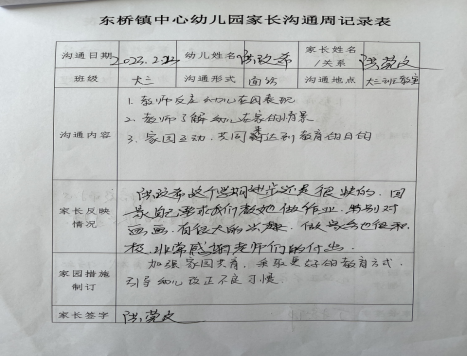 东桥镇中心幼儿园家长沟通周记录表
沟通日期 2023.2.22 幼儿姓名 陈玟希 家长姓名/关系 陈荣文
班级 大三 沟通形式 面谈 沟通地点 大三班教室
沟通内容
1. 教师反应幼儿在园表现
2. 教师了解幼儿在家的情景
3. 家园互动,共同达到教育的目的
家长反映情况
这个学期进步还是很快的,回
家自己要求我们教她做作业,特别对
画画有很大的兴趣,做学务也很积
极,非常感谢老师们的付出。
家园措施制订
加强家园共育,采取更好的教育方式,
引导幼儿改正不良习惯。
家长签字 陈荣文